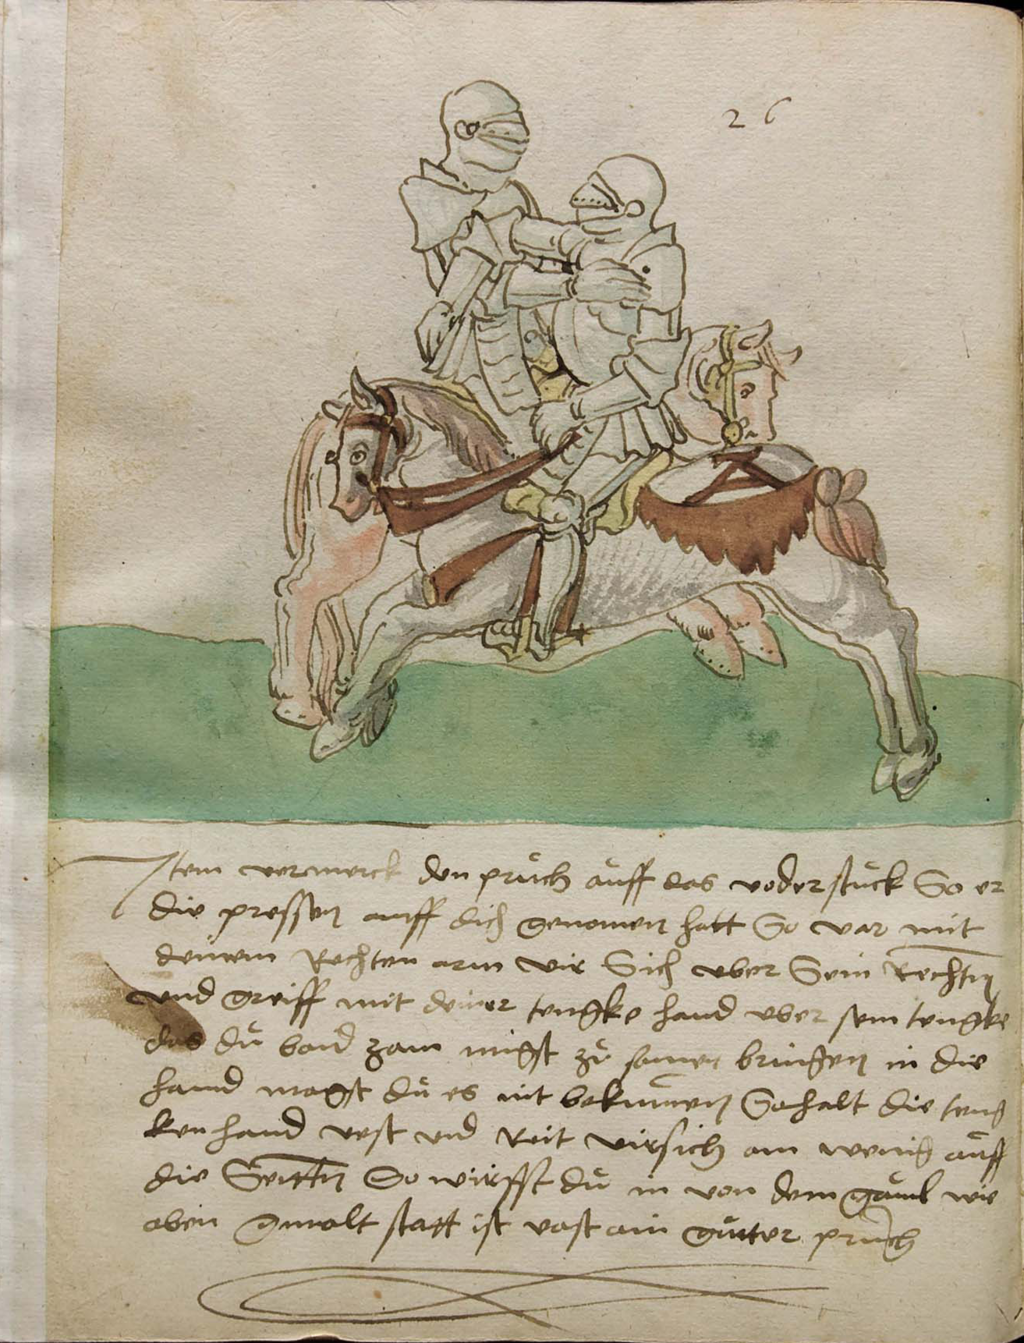 26
Item vermerck den pruch auff das voder stuck So er
die pressen auff dich genomen hatt So var mit
deinem Rechten arm vir Sich vber Sein Rechtn
vnd greiff mit deiner tengke hand vber sein tengke
das du baid zam migst zu samen bringen in die
hannd magst du es nit bekumen So halt die teng
ken hand vest vnd Reit virsich am wenig auff
die Seittn So wirffst du in von dem gaul wie
oben gmalt statt ist vast ain gutter pruch